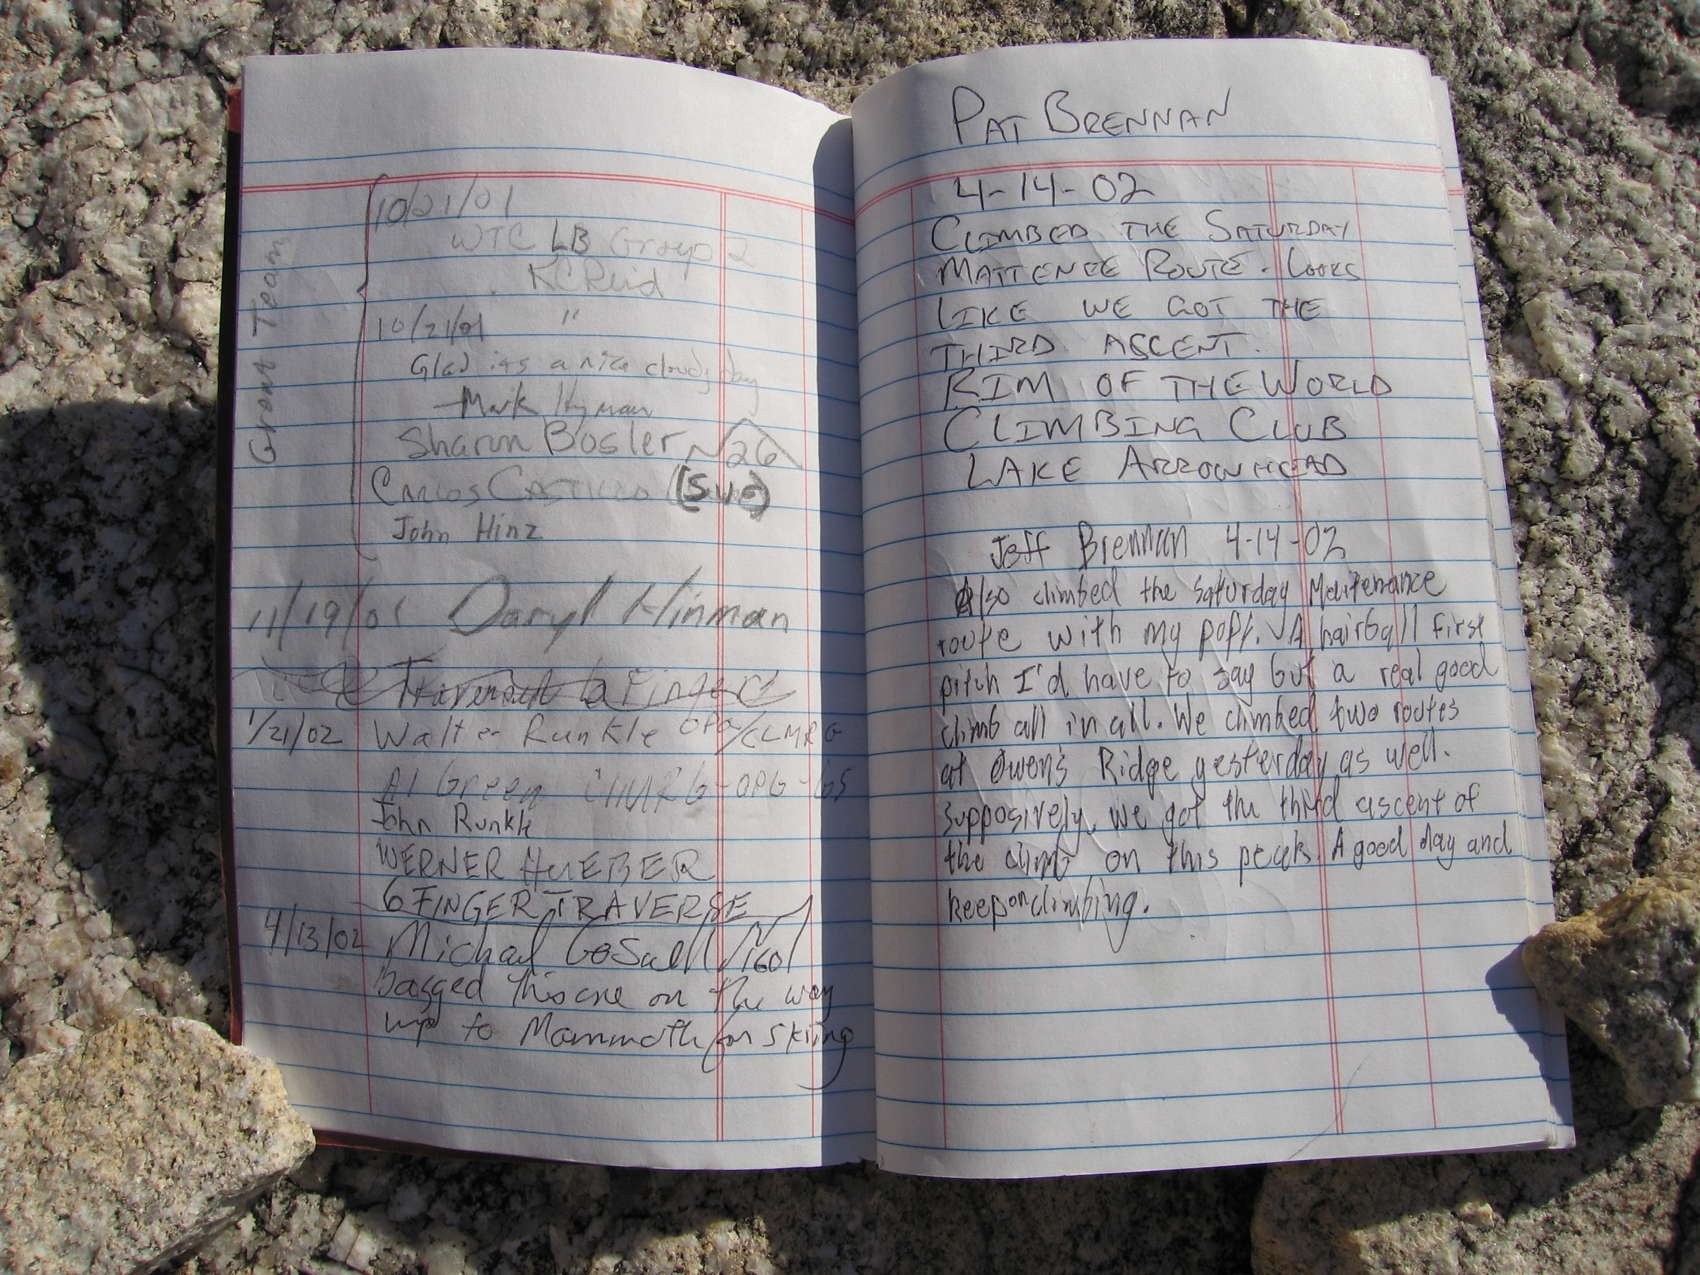 Grant Team
10/21/01
WTC LB Group 2
KC Reid
10/21/01 "
Glad its a nice cloudy day
-Mark Hyman
Sharon Bosler 26
CARLOS CASTILLO
John Hinz
11/19/01 Daryl Hinman
Finger
1/21/02 Walter Runkle OPG/CLMRG
Al Green CLMRG-OPG-
John Runkle
WERNER HUEBER
6 FINGER TRAVERSE
4/13/02 Michael Goswell 1601
bagged this one on the way
up to Mammoth for skiing
PAT BRENNAN
4-14-02
CLIMBED THE SATURDAY
MATTENCE ROUTE. LOOKS
LIKE WE GOT THE
THIRD ASCENT.
RIM OF THE WORLD
CLIMBING CLUB
LAKE ARROWHEAD
Jeff Brennan 4-14-02
Also climbed the Saturday Maitenance
route with my pops. A hairball first
pitch I'd have to say but a real good
climb all in all. We climbed two routes
at Owens Ridge yesterday as well.
Supposively, we got the third ascent of
the climb on this peak. A good day and
keep on climbing.